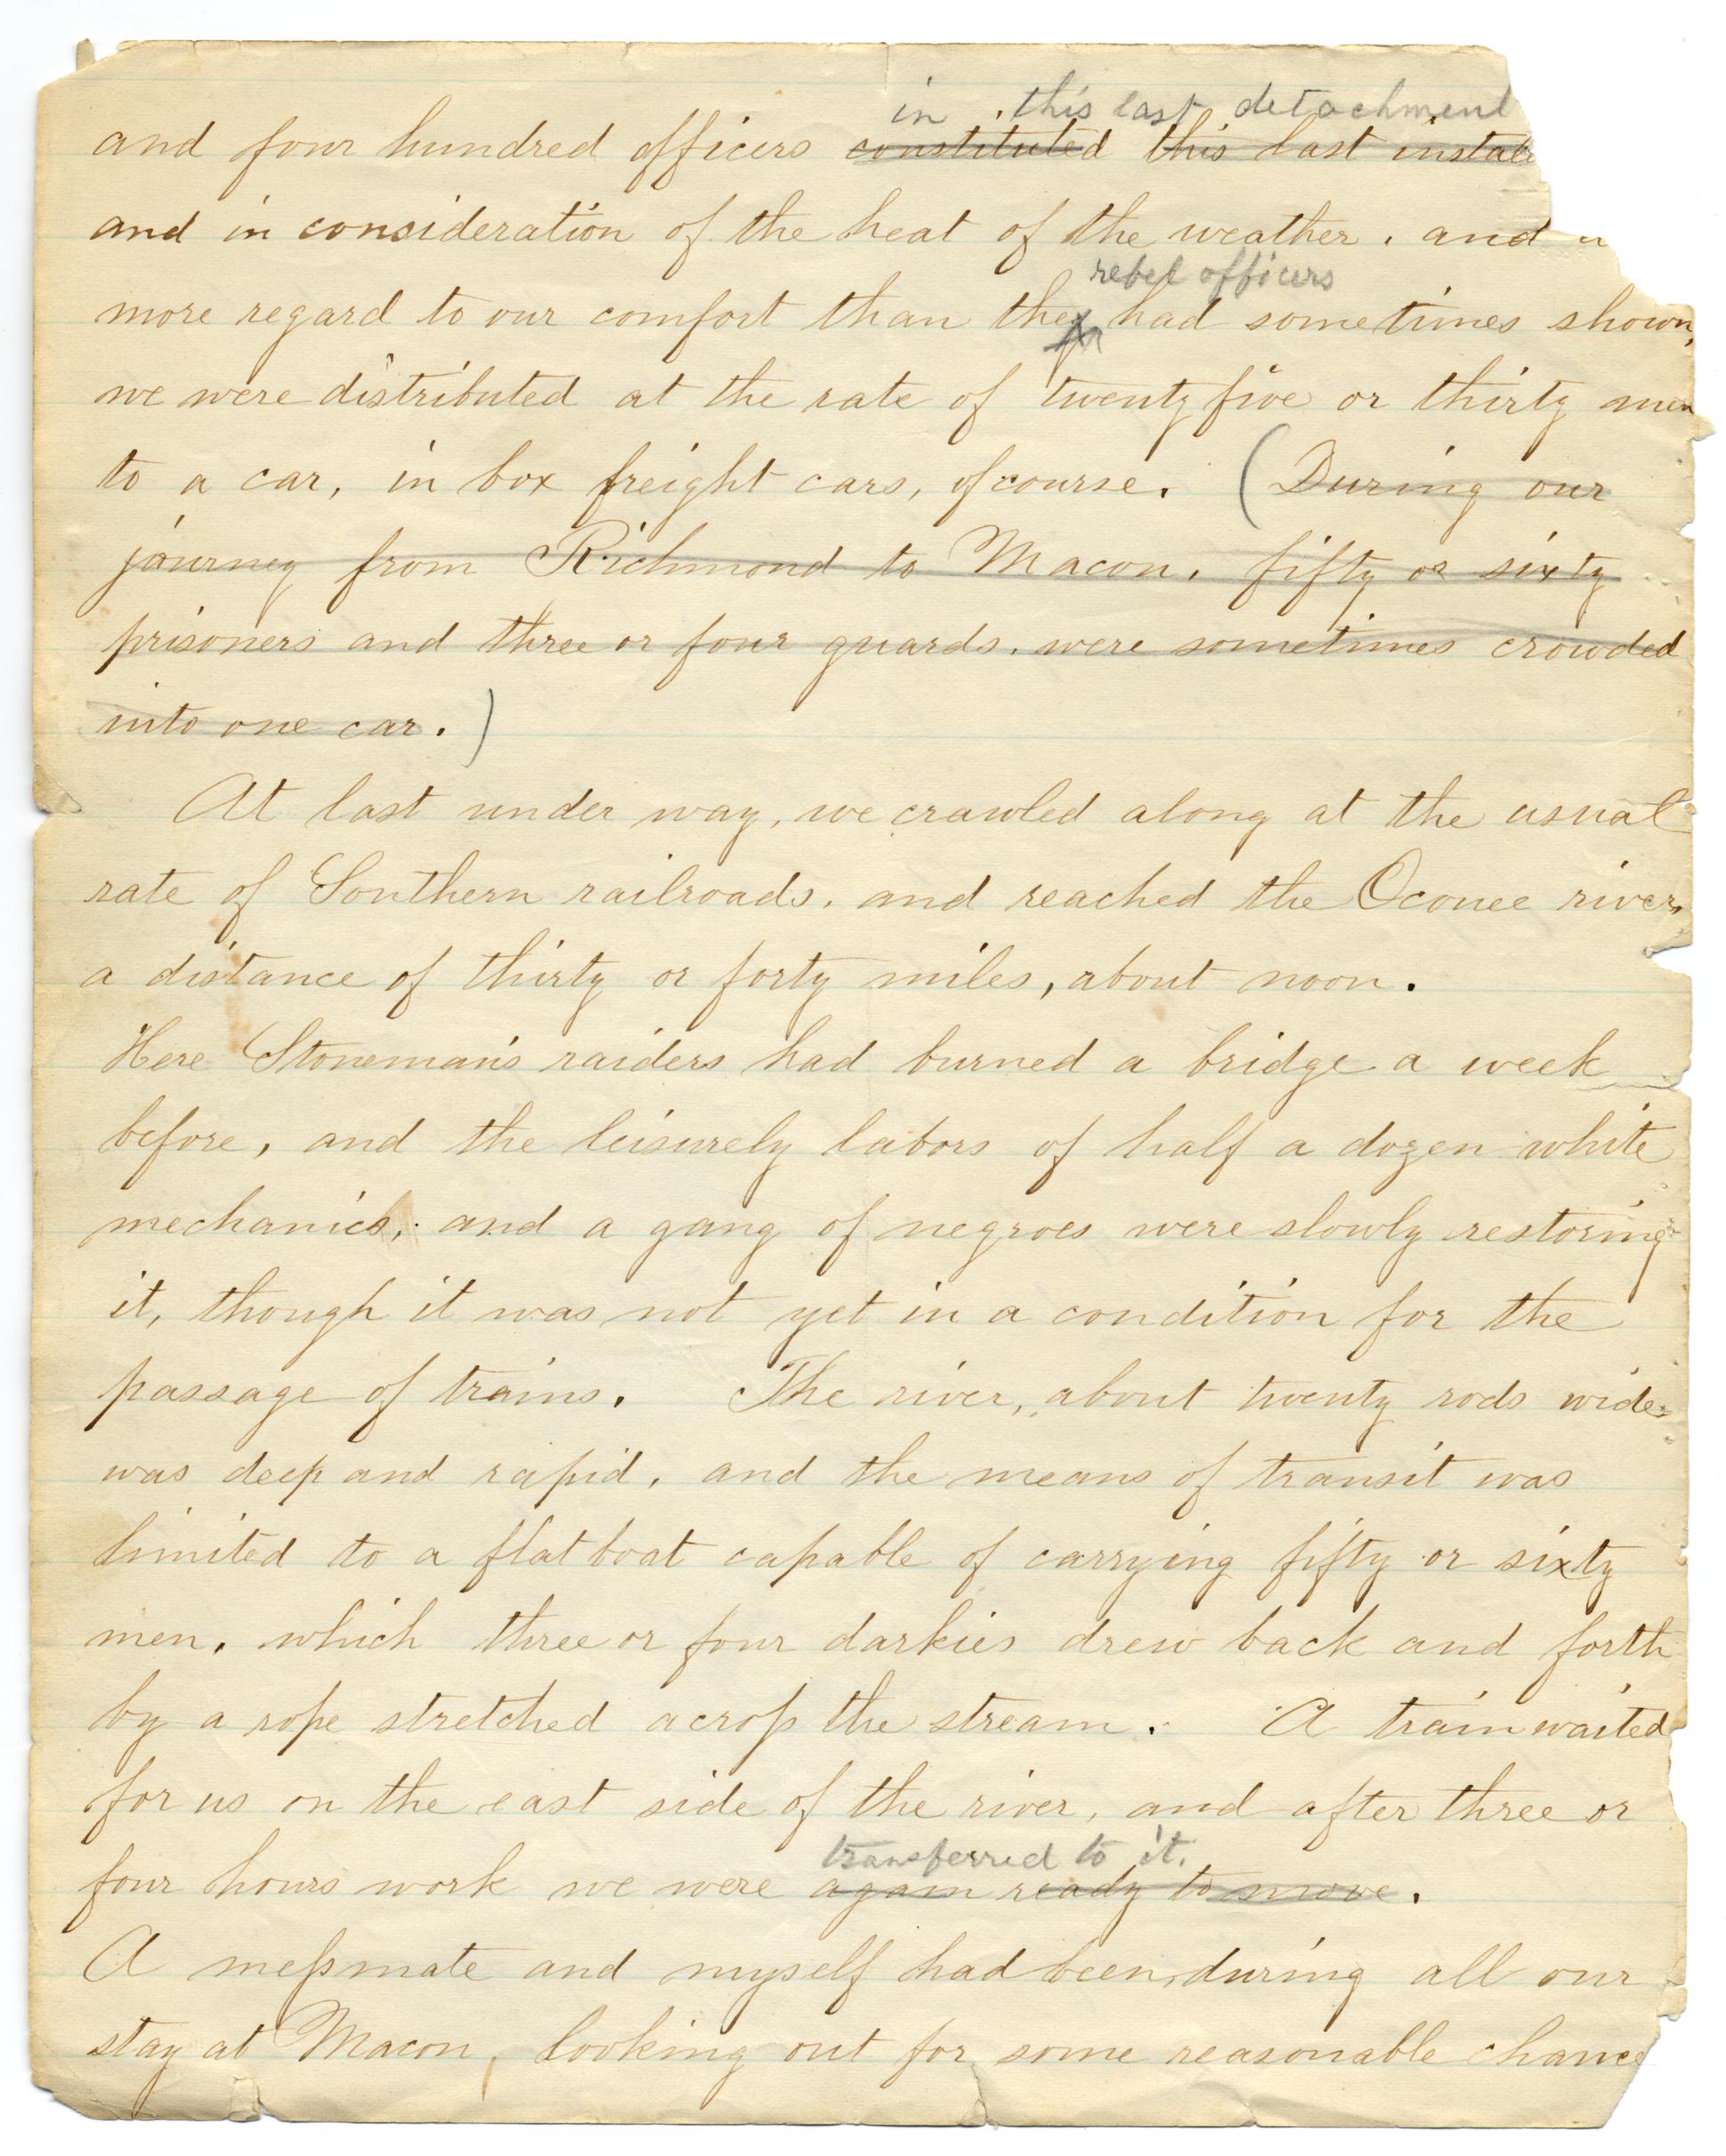 in this last detachment
and four hundred officers constituted this last instal
and in consideration of the heat of the weather, and
rebel officers
more regard to our comfort than they had sometimes shown,
we were distributed at the rate of twenty five or thirty men
to a car, in box freight cars, of course. (During our
journey from Richmond to Macon, fifty or sixty
prisoners and three or four guards, were sometimes crowded
into one car.)
At last under way, we crawled along at the usual
rate of Southern railroads, and reached the Oconee river,
a distance of thirty or forty miles, about noon.
Here Stoneman's raiders had burned a bridge a week
before, and the leisurely labors of half a dozen white
mechanics, and a gang of negroes were slowly restoring
it, though it was not yet in a condition for the
passage of trains. The river, about twenty rods wide,
was deep and rapid, and the means of transit was
limited to a flat boat capable of carrying fifty or sixty
men, which three or four darkies drew back and forth
by a rope stretched across the stream. A train waited
for us on the east side of the river, and after three or
transferred to it.
four hours work we were again ready to move.
A messmate and myself had been, during all our
stay at Macon, looking out for some reasonable chance